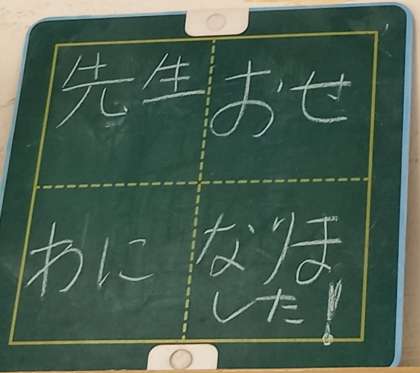 先生おせ
わになりま
した!